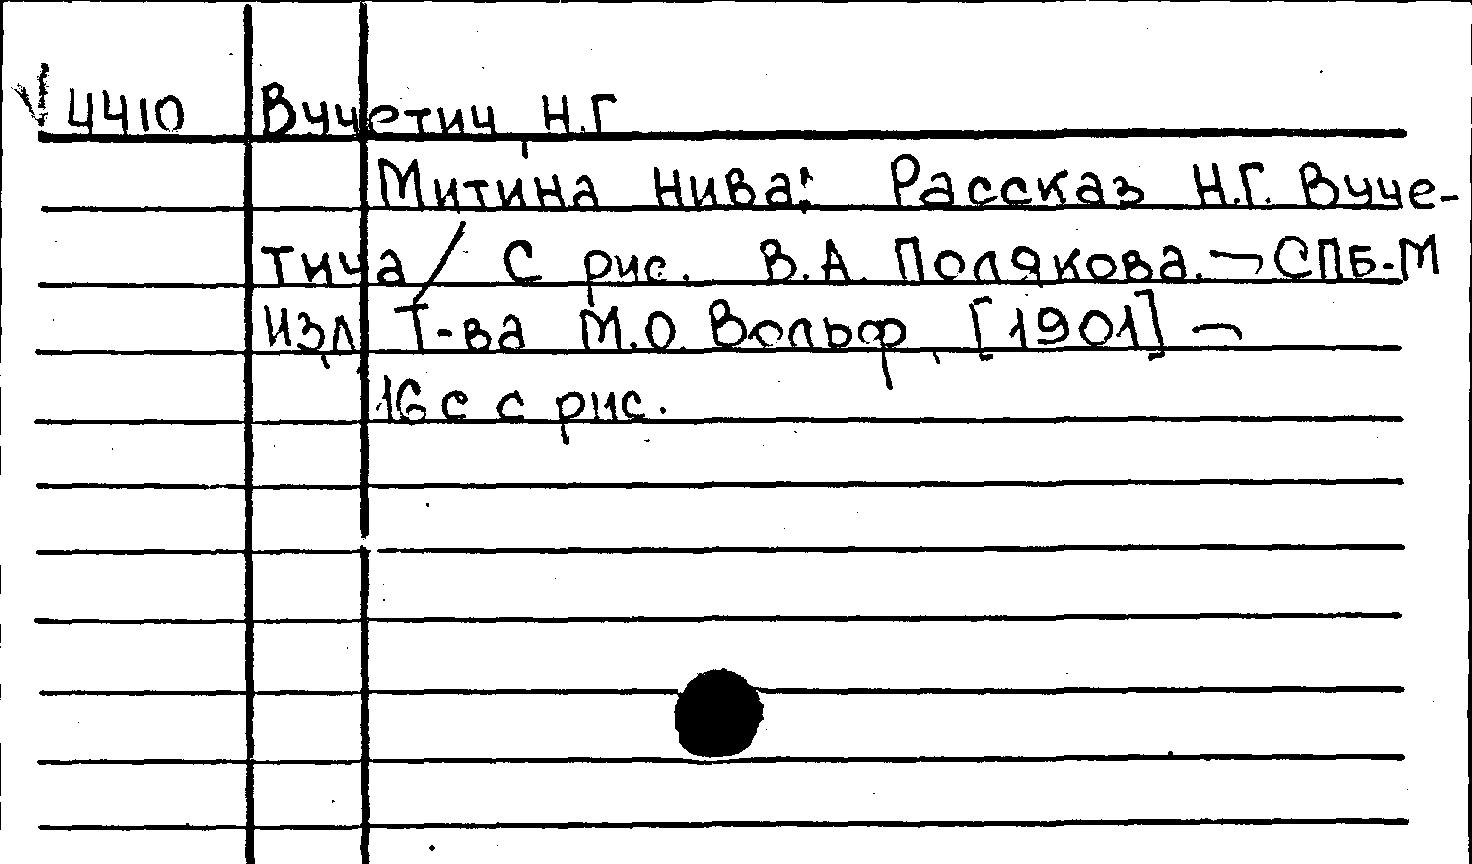 4410 Вучетич Н.Г
Митина нива: Рассказ Н.Г. Вуче-
тича / С рис. В.А. Полякова. — СПБ-М
Изд. Т-ва М.О. Вольф, [1901] —
16 с с рис.